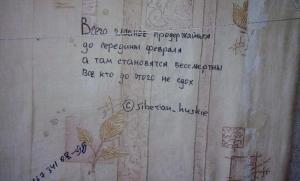 Всего главное продержаться
до середины февраля
а там становятся бессмертны
Все кто до этого не сдох
© siberian_huskie